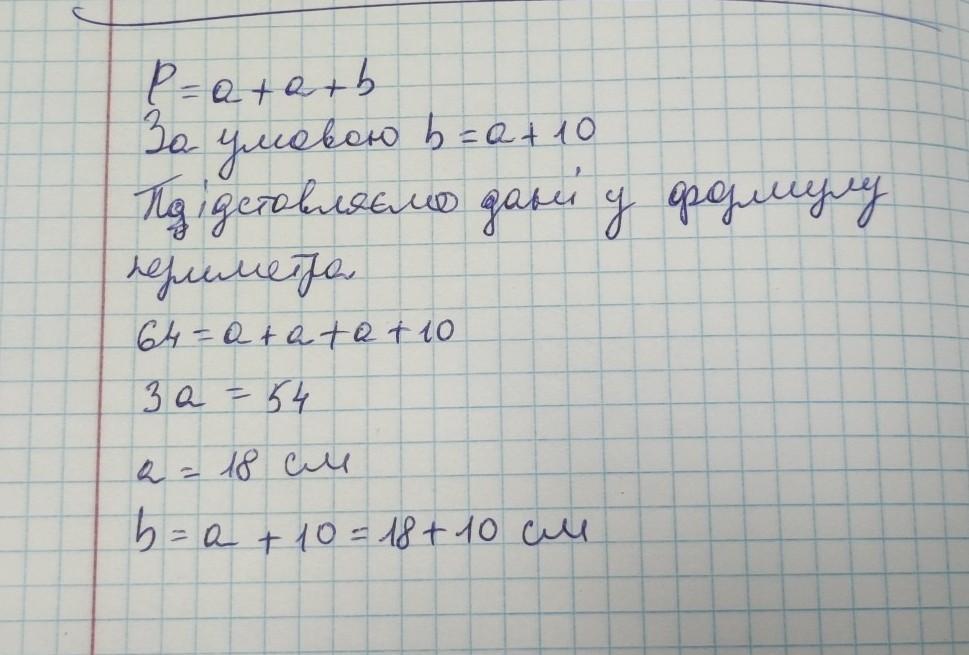 P = a + a + b
За умовою b = a + 10
Підставляємо дані у формулу
периметра
64 = a + a + a + 10
3a = 54
a = 18 см
b = a + 10 = 18 + 10 см